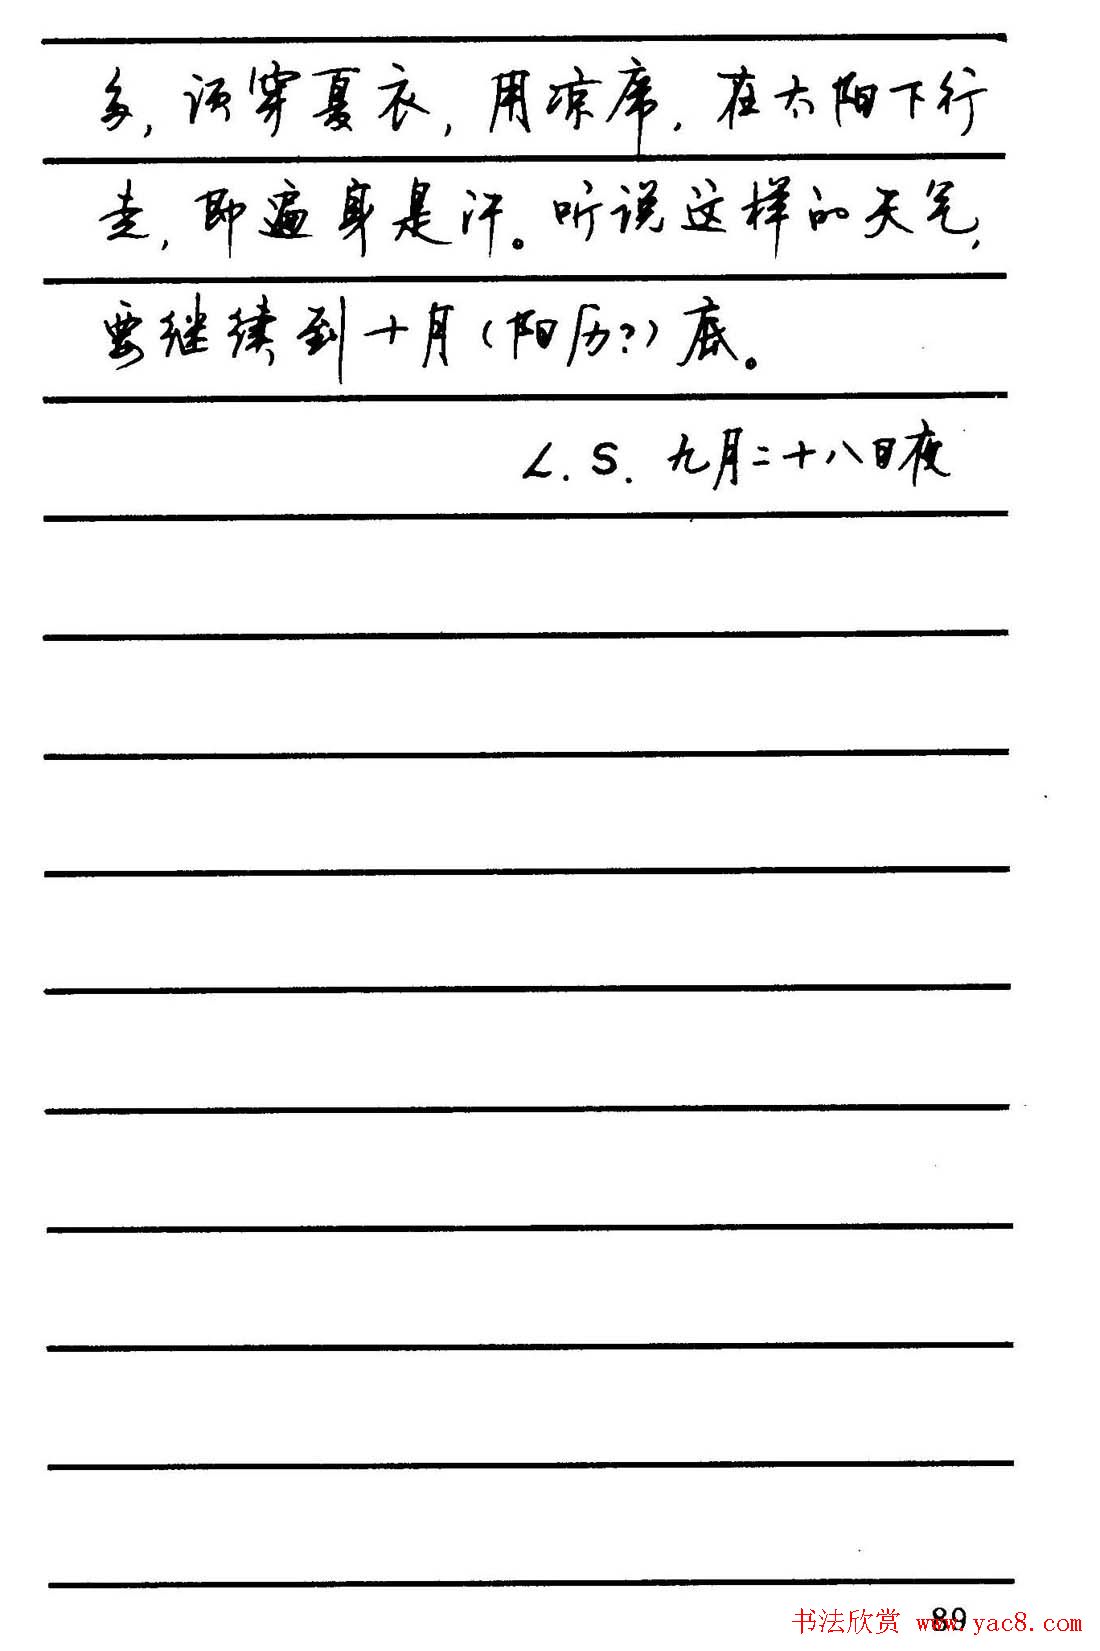 多，须穿夏衣，用凉席，在太阳下行
走，即遍身是汗。听说这样的天气，
要继续到十月（阳历？）底。
L.S. 九月二十八日夜
89
书法欣赏 www.yac8.com